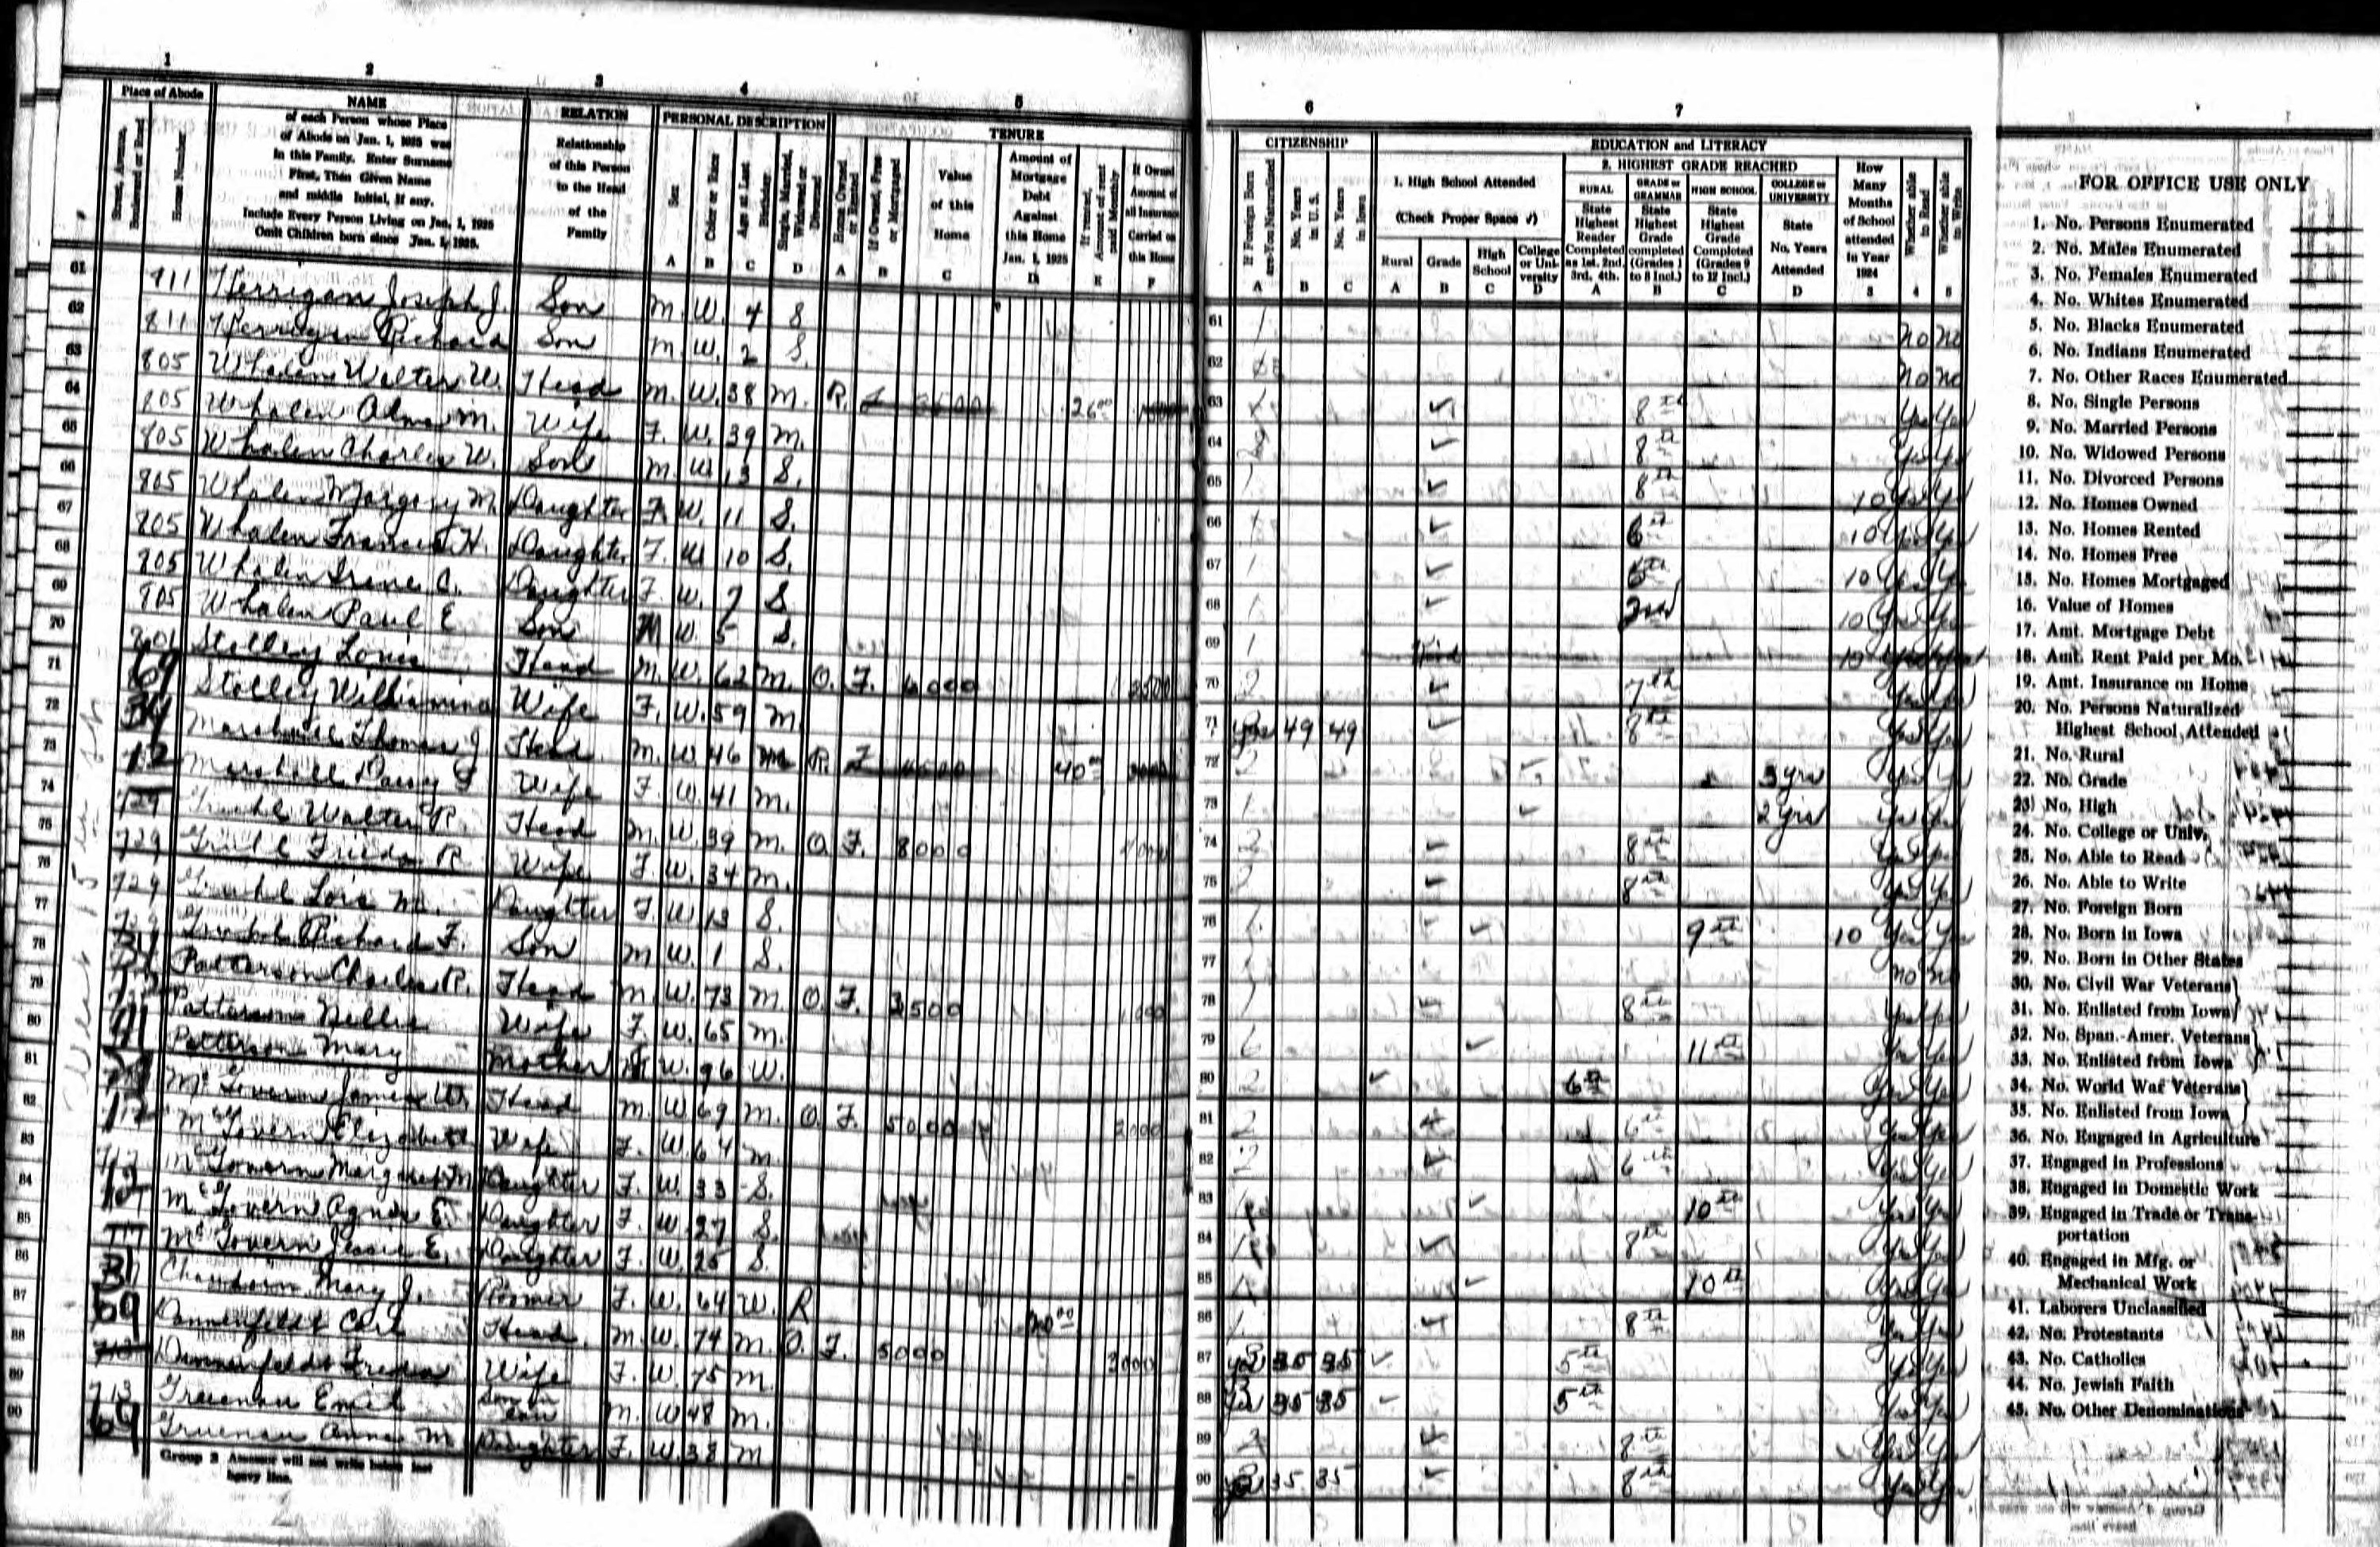 1 2 3 4 5
Place of Abode
Street, Avenue, Boulevard or Road
House Number
NAME
of each Person whose Place
of Abode on Jan. 1, 1925 was
in this Family. Enter Surname
First, Then Given Name
and middle Initial, if any.
Include Every Person Living on Jan. 1, 1925
Omit Children born since Jan. 1, 1925.
RELATION
Relationship
of this Person
to the Head
of the
Family
PERSONAL DESCRIPTION
Sex A
Color or Race B
Age at Last Birthday C
Single, Married, Widowed or Divorced D
TENURE
Home Owned or Rented A
If Owned, Free or Mortgaged B
Value of this Home C
Amount of Mortgage Debt Against this Home Jan. 1, 1925 D
If rented, Amount of rent paid Monthly E
If Owned Amount of all Insurance Carried on this Home F
61 811 Kerrigan Joseph J. Son M. W. 4 S
62 811 Kerrigan Richard Son M. W. 2 S.
63 805 Whalen Walter W. Head M. W. 38 M. R. 26 00
64 805 Whalen Alma M. Wife F. W. 39 M.
65 805 Whalen Charles W. Son M W. 13 S.
66 805 Whalen Margory M. Daughter F. W. 11 S.
67 805 Whalen Frances H. Daughter F. W 10 S.
68 805 Whalen Irene C. Daughter F. W. 7 S
69 805 Whalen Paul E Son M W. 5 S.
70 801 Stelley Louis Head M. W. 62 M. O. F. 6000 3500
71 Stelley Williamina Wife F. W. 59 M
72 Marshall Thomas J Head M. W. 46 M R. 40 00
73 Marshall Daisy F Wife F. W. 41 M.
74 729 Walter R. Head M. W. 39 M. O. F. 8000
75 729 Frieda R Wife F. W. 34 M.
76 729 Lois M. Daughter F. W. 13 S.
77 729 Richard F. Son M W. 1 S.
78 Patterson Charles R. Head M. W. 73 M. O. F. 3500 1000
79 Patterson Nellie Wife F. W. 65 M.
80 Patterson Mary Mother W. 96 W.
81 McGovern James W. Head M. W. 69 M. O. F. 5000 2000
82 McGovern Elizabeth Wife F. W 64 M
83 McGovern Margaret M Daughter F. W. 33 S.
84 McGovern Agnes E. Daughter F. W. 27 S.
85 McGovern Jessie E. Daughter F. W. 25 S.
86 Mary J. Roomer F. W. 64 W. R 00
87 Dannenfeldt Carl Head M. W. 74 M. O. F. 5000 3000
88 Dannenfeldt Freda Wife F. W. 75 M.
89 713 Truenau Emil Son in Law M. W 48 M.
90 Truenau Anna M Daughter F. W. 38 M
Group 2 Assessor will not write below last
heavy line.
6 7
CITIZENSHIP
If Foreign Born are You Naturalized A
No. Years in U.S. B
No. Years in Iowa C
EDUCATION and LITERACY
1. High School Attended
(Check Proper Space √)
Rural A
Grade B
High School C
College or University D
2. HIGHEST GRADE REACHED
RURAL State Highest Reader Completed as 1st. 2nd. 3rd. 4th. A
GRADE or GRAMMAR State Highest Grade completed (Grades 1 to 8 Incl.) B
HIGH SCHOOL State Highest Grade Completed (Grades 9 to 12 Incl.) C
COLLEGE or UNIVERSITY State No. Years Attended D
How Many Months of School attended in Year 1924 3
Whether able to Read 4
Whether able to Write 5
61 1 no no
62 no no
63 ✓ 8th Yes Yes
64 ✓ 8th Yes Yes
65 1 ✓ 8th 10 Yes Yes
66 ✓ 6th 10 Yes Yes
67 1 ✓ 5th 10 Yes Yes
68 1 ✓ 2nd 10 Yes Yes
69 1 10
70 2 ✓ 7th Yes Yes
71 Yes 49 49 ✓ 8th Yes Yes
72 2 ✓ 3 yrs Yes Yes
73 1 ✓ 2 yrs Yes Yes
74 2 ✓ 8th Yes Yes
75 2 ✓ 8th Yes Yes
76 1 ✓ 9th 10 Yes Yes
77 1 no no
78 1 ✓ 8th Yes Yes
79 ✓ 11th Yes Yes
80 2 ✓ 6th Yes Yes
81 2 ✓ 6th Yes Yes
82 2 ✓ 6th Yes Yes
83 1 ✓ 10th Yes Yes
84 1 ✓ 8th Yes Yes
85 1 ✓ 10th Yes Yes
86 1 ✓ 8th Yes Yes
87 Yes 35 35 ✓ 5th Yes Yes
88 Yes 35 35 ✓ 5th Yes Yes
89 2 ✓ 8th Yes Yes
90 Yes 35 35 ✓ 8th Yes Yes
FOR OFFICE USE ONLY
1. No. Persons Enumerated
2. No. Males Enumerated
3. No. Females Enumerated
4. No. Whites Enumerated
5. No. Blacks Enumerated
6. No. Indians Enumerated
7. No. Other Races Enumerated
8. No. Single Persons
9. No. Married Persons
10. No. Widowed Persons
11. No. Divorced Persons
12. No. Homes Owned
13. No. Homes Rented
14. No. Homes Free
15. No. Homes Mortgaged
16. Value of Homes
17. Amt. Mortgage Debt
18. Amt. Rent Paid per Mo.
19. Amt. Insurance on Home
20. No. Persons Naturalized
Highest School Attended
21. No. Rural
22. No. Grade
23. No. High
24. No. College or Univ.
25. No. Able to Read
26. No. Able to Write
27. No. Foreign Born
28. No. Born in Iowa
29. No. Born in Other States
30. No. Civil War Veterans
31. No. Enlisted from Iowa
32. No. Span.-Amer. Veterans
33. No. Enlisted from Iowa
34. No. World War Veterans
35. No. Enlisted from Iowa
36. No. Engaged in Agriculture
37. Engaged in Professions
38. Engaged in Domestic Work
39. Engaged in Trade or Trans-
portation
40. Engaged in Mfg. or
Mechanical Work
41. Laborers Unclassified
42. No. Protestants
43. No. Catholics
44. No. Jewish Faith
45. No. Other Denominations